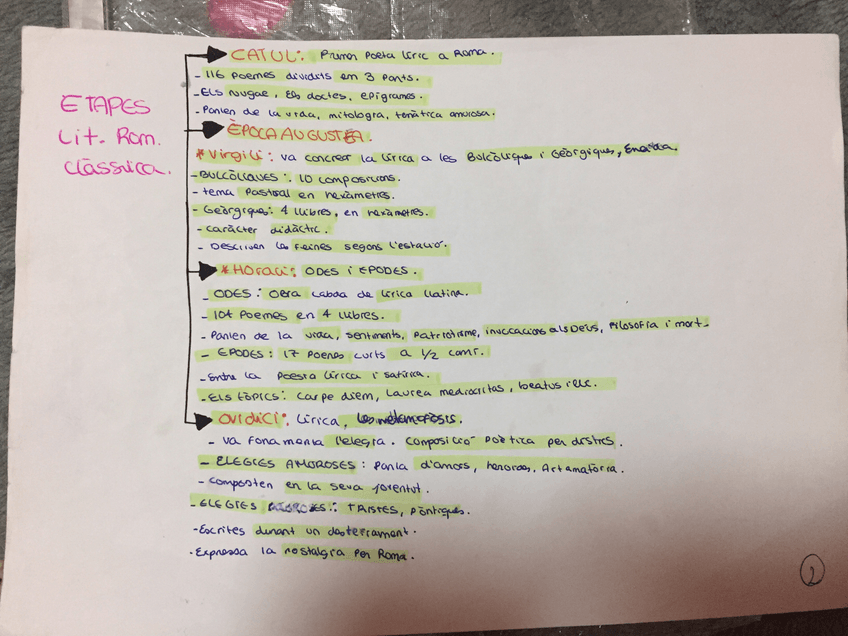 ETAPES
Lit. Rom.
Clàssica.
CATUL: Primer Poeta líric a Roma.
- 116 Poemes dividits em 3 Parts.
- Els Nugae, Els doctes, epigrames.
- Parlen de la vida, mitologia, temàtica amorosa.
ÈPOCA AUGUSTEA.
*Virgili: va conrear la lírica a les Bulcòliques i Geòrgiques, Eneida.
- BULCÒLIQUES: 10 composicions.
- tema Pastoral en hexàmetres.
- Geòrgiques: 4 llibres, en hexàmetres.
- caràcter didàctic.
- Descriuen les feines segons l'estació.
*Horaci: ODES i EPODES.
- ODES: Obra cabda de lírica llatina.
- 104 Poemes en 4 llibres.
- Parlen de la vida, sentiments, Patriotisme, invocacions als Déus, Filosofia i mort.
- EPODES: 17 poemes curts a 1/2 camí.
- Entre la Poesia lírica i satírica.
- Els tòpics: Carpe diem, Laurea mediocritas, beatus ille.
OVIDICI: Lírica, les metamorfosis.
- Va fonamenta l'elegia. Composició poètica per dístics.
- ELEGIES AMOROSES: Parla d'amors, heroides, Art amatòria.
- Composten en la seva joventut.
- ELEGIES : TRISTES, Pòntiques.
- Escrites durant un desterrament.
- Expressa la nostalgia per Roma.
2